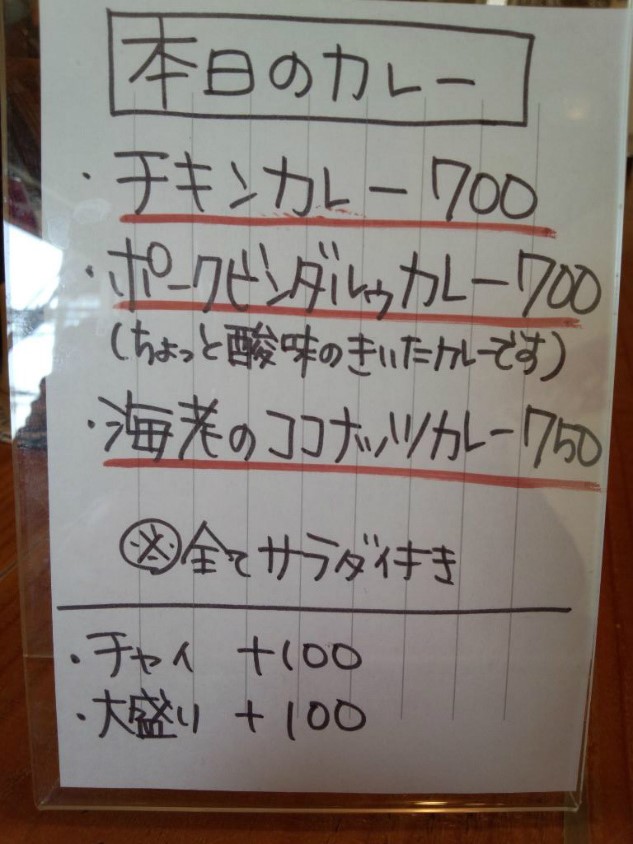 本日のカレー
・チキンカレー 700
・ポークビンダルゥカレー 700
(ちょっと酸味のきいたカレーです)
・海老のココナッツカレー 750
※全てサラダ付き
・チャイ +100
・大盛り +100